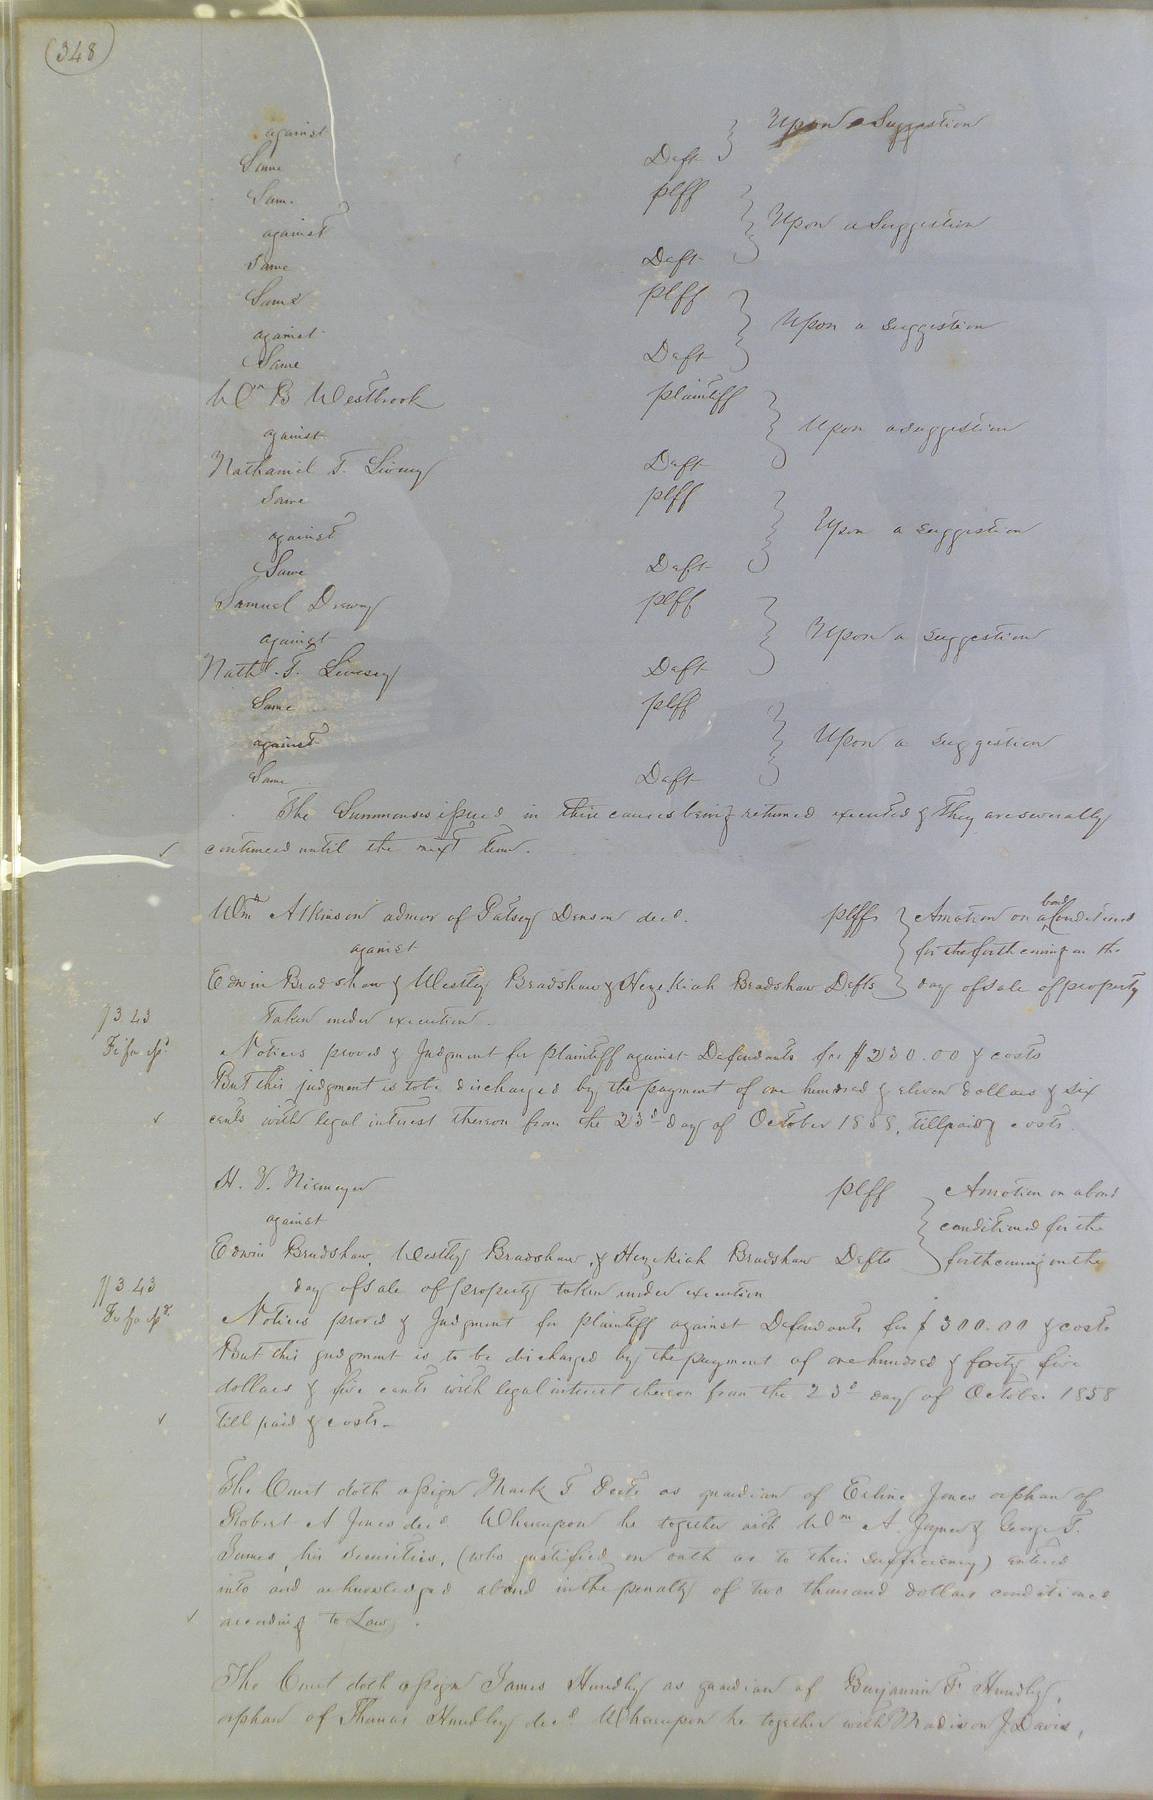 (348)
against Upon a Suggestion
Same Deft
Same plff
against Upon a Suggestion
Same Deft
Same plff
against Upon a suggestion
Same Deft
Wm B Westbrook plaintiff
against Upon a suggestion
Nathaniel T. Livesey Deft
Same plff
against Upon a suggestion
Same Deft
Samuel Drewry plff
against Upon a suggestion
Nathl. T. Livesey Deft
Same plff
against Upon a suggestion
Same Deft
The Summonses issued in these causes being returned executed & They are severally
continued until the next term.
Wm Atkinson admor of Patsey Denson decd. plffs A motion on a bond Conditioned
against for the forthcoming on the
Edwin Bradshaw & Westley Bradshaw & Hezekiah Bradshaw Defts day of sale of property
Taken under execution.
$3.43
Notices proved & Judgment for plaintiff against Defendants for $230.00 & costs
Fi fa
But this judgment is to be discharged by the payment of one hundred & eleven dollars & six
cents with legal interest thereon from the 23d day of October 1858, till paid & costs.
H. V. Niemeyer plff A motion on a bond
against conditioned for the
Edwin Bradshaw, Westley Bradshaw, & Hezekiah Bradshaw Defts forthcoming on the
day of sale of property taken under execution
$3.43
Notices proved & Judgment for plaintiff against Defendants for $300.00 & costs
Fi fa
But this judgment is to be discharged by the payment of one hundred & forty five
dollars & five cents with legal interest thereon from the 23d day of October 1858
till paid & costs.
The Court doth assign Mark T as guardian of Jones orphan of
Robert A Jones decd Whereupon he together with Wm A. Joyner & George T.
James his securities, (who justified on oath as to their sufficiency) entered
into and acknowledged a bond in the penalty of two thousand dollars conditioned
according to Law.
The Court doth assign James Hundley as guardian of Benjamin F Hundley,
orphan of Thomas Hundley decd Whereupon he together with Madison J. Davis,